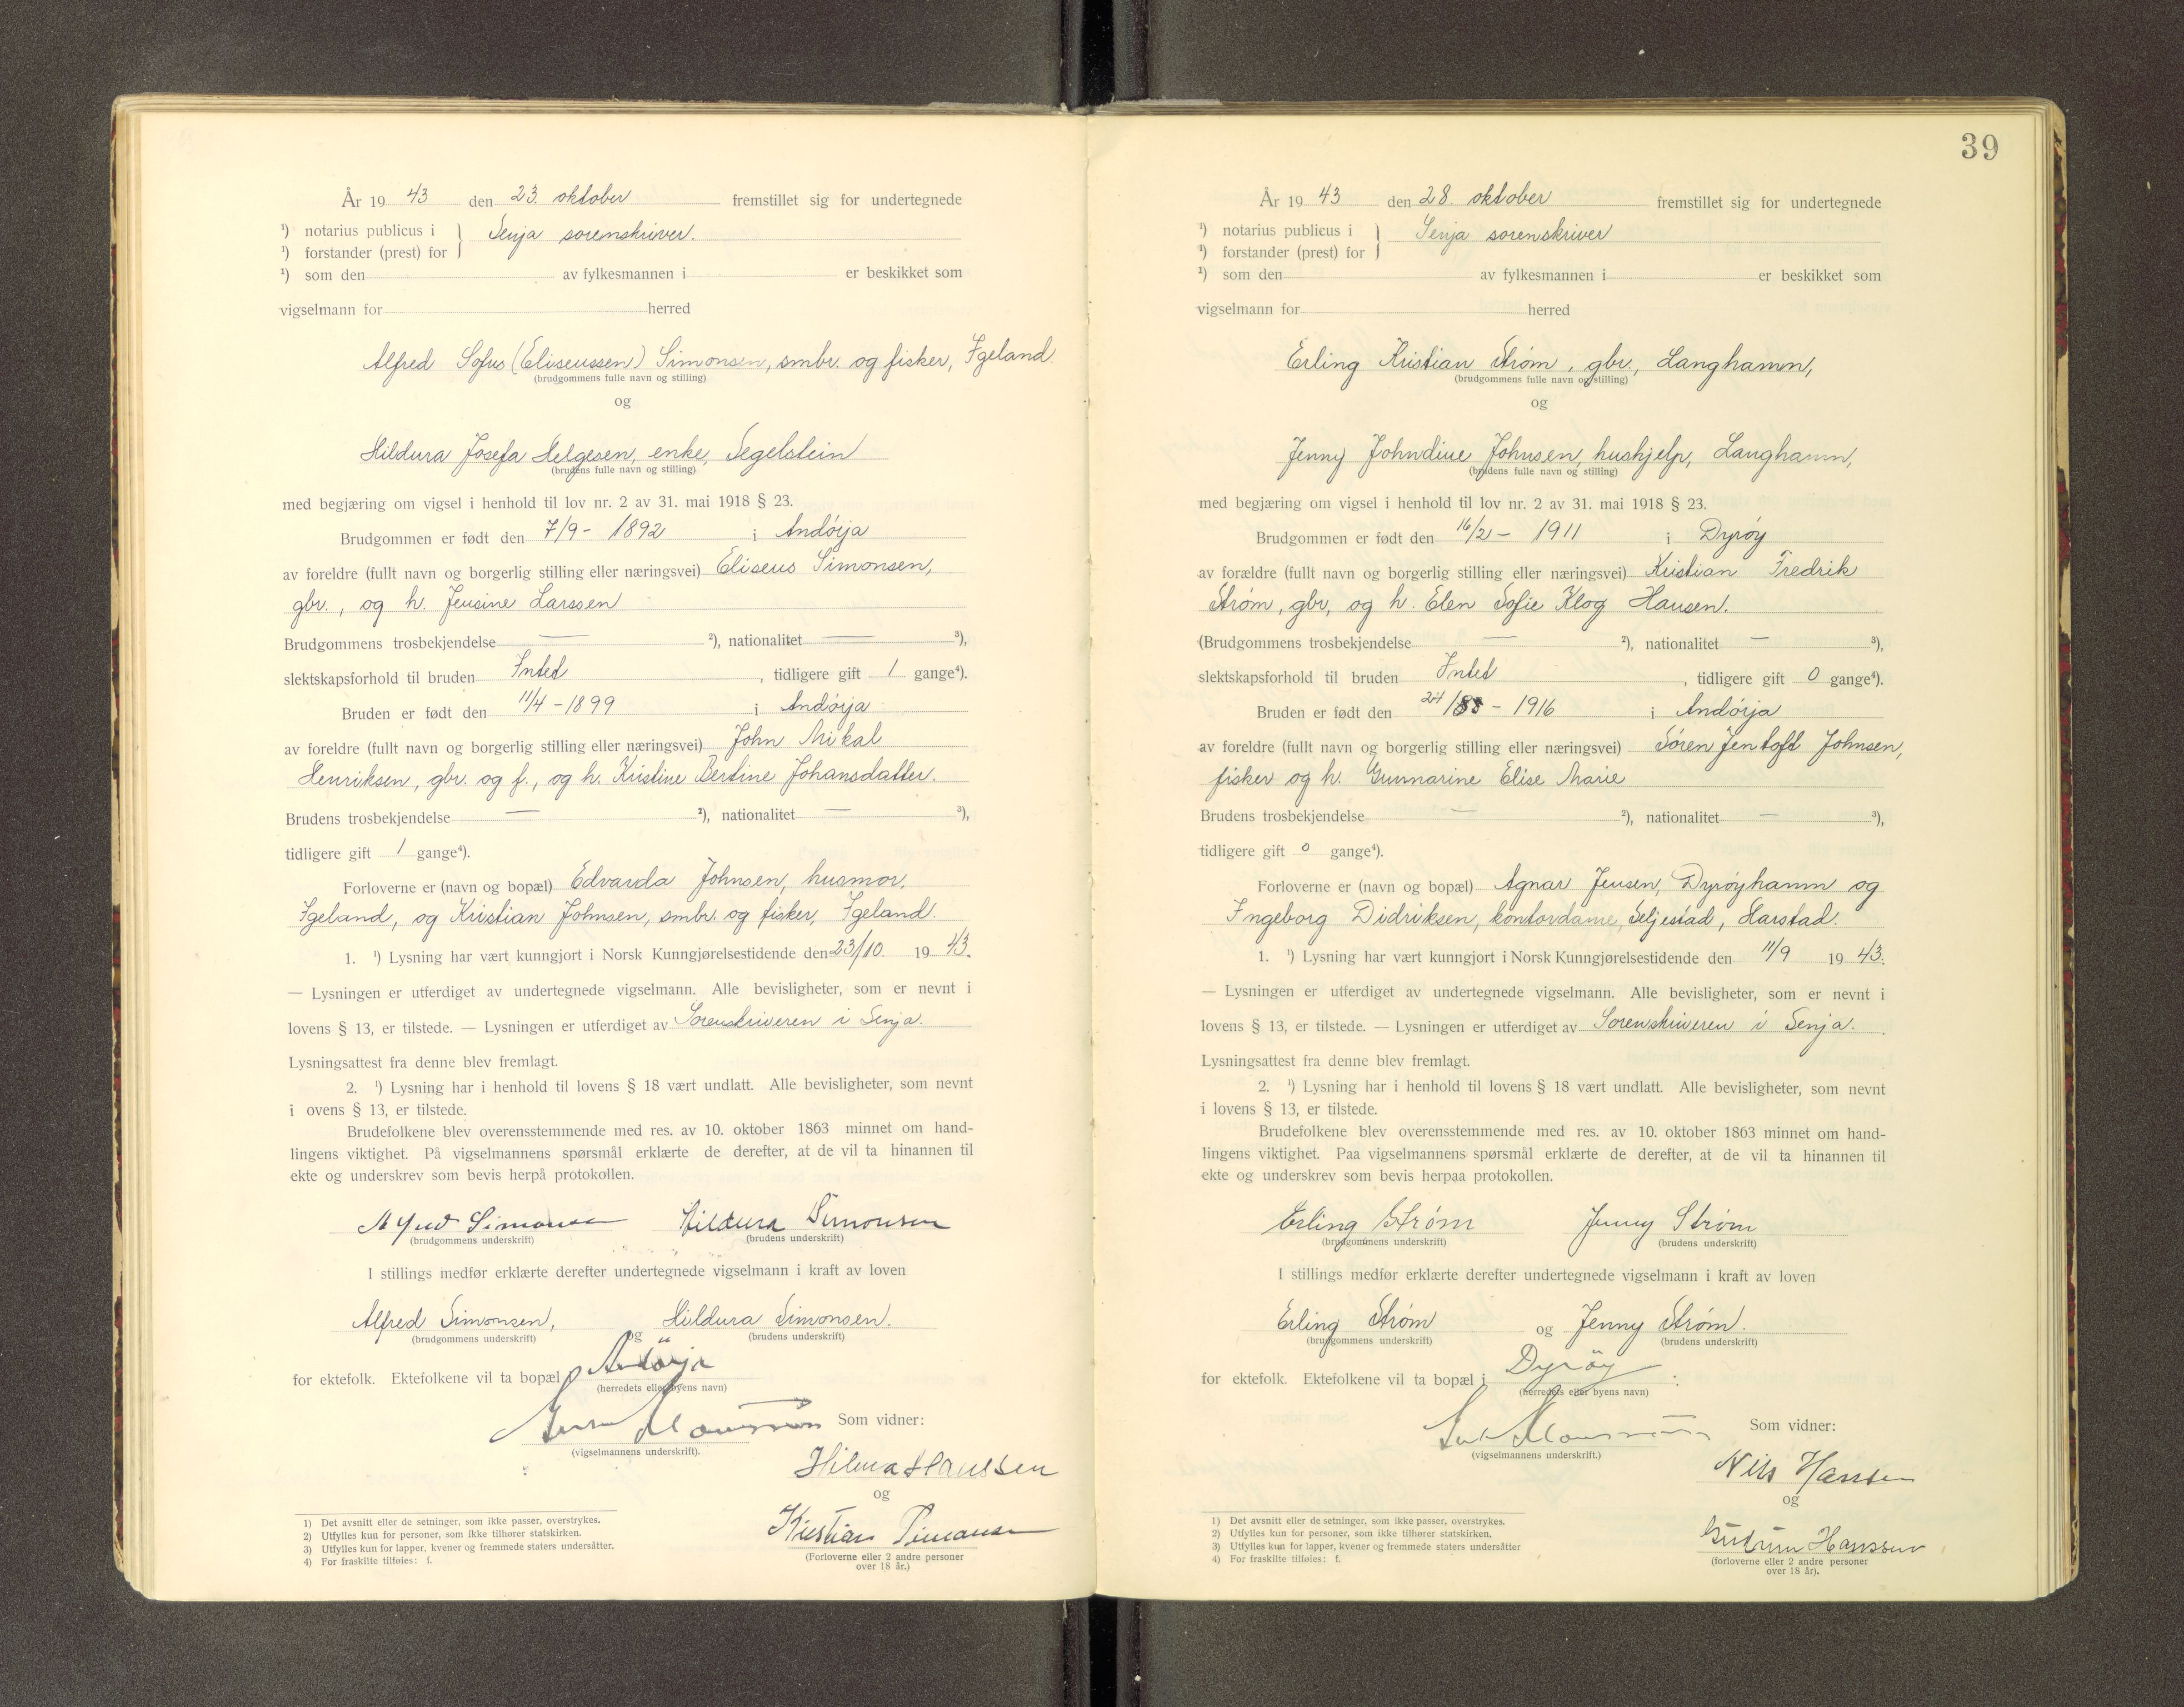 År 19 43 den 23. oktober fremstillet sig for undertegnede
¹) notarius publicus i } Senja sorenskriver.
¹) forstander (prest) for
¹) som den av fylkesmannen i er beskikket som
vigselmann for herred
Alfred Sofus (Eliseussen) Simonsen, smbr. og fisker, Igeland.
(brudgommens fulle navn og stilling)
og
Hildura Josefa Helgesen, enke, Segelstein
(brudens fulle navn og stilling)
med begjæring om vigsel i henhold til lov nr. 2 av 31. mai 1918 § 23.
Brudgommen er født den 7/9 - 1892 i Andørja
av foreldre (fullt navn og borgerlig stilling eller næringsvei) Eliseus Simonsen,
gbr., og h. Jensine Larssen
Brudgommens trosbekjendelse — ²), nationalitet — ³),
slektskapsforhold til bruden Intet, tidligere gift 1 gange⁴).
Bruden er født den 11/4 - 1899 i Andørja
av foreldre (fullt navn og borgerlig stilling eller næringsvei) John Mikal
Henriksen, gbr. og f., og h. Kristine Bertine Johansdatter.
Brudens trosbekjendelse — ²), nationalitet — ³),
tidligere gift 1 gange⁴).
Forloverne er (navn og bopæl) Edvarda Johnsen, husmor,
Igeland, og Kristian Johnsen, smbr. og fisker, Igeland.
1. ¹) Lysning har vært kunngjort i Norsk Kunngjørelsestidende den 23/10. 19 43.
— Lysningen er utferdiget av undertegnede vigselmann. Alle bevisligheter, som er nevnt i
lovens § 13, er tilstede. — Lysningen er utferdiget av Sorenskriveren i Senja.
Lysningsattest fra denne blev fremlagt.
2. ¹) Lysning har i henhold til lovens § 18 vært undlatt. Alle bevisligheter, som nevnt
i ovens § 13, er tilstede.
Brudefolkene blev overensstemmende med res. av 10. oktober 1863 minnet om hand-
lingens viktighet. På vigselmannens spørsmål erklærte de derefter, at de vil ta hinannen til
ekte og underskrev som bevis herpå protokollen.
Alfred Simonsen Hildura Simonsen
(brudgommens underskrift) (brudens underskrift)
I stillings medfør erklærte derefter undertegnede vigselmann i kraft av loven
Alfred Simonsen, og Hildura Simonsen.
(brudgommens underskrift) (brudens underskrift)
for ektefolk. Ektefolkene vil ta bopæl i Andörja
(herredets eller byens navn)
Som vidner:
(vigselmannens underskrift).
Hilma Hanssen
og
Kristian Simonsen
(Forloverne eller 2 andre personer
over 18 år.)
1) Det avsnitt eller de setninger, som ikke passer, overstrykes.
2) Utfylles kun for personer, som ikke tilhører statskirken.
3) Utfylles kun for lapper, kvener og fremmede staters undersåtter.
4) For fraskilte tilføies: f.
39
År 19 43 den 28. oktober fremstillet sig for undertegnede
¹) notarius publicus i } Senja sorenskriver
¹) forstander (prest) for
¹) som den av fylkesmannen i er beskikket som
vigselmann for herred
Erling Kristian Strøm, gbr., Langhamn,
(brudgommens fulle navn og stilling)
og
Jenny Johndine Johnsen, hushjelp, Langhamn,
(brudens fulle navn og stilling)
med begjæring om vigsel i henhold til lov nr. 2 av 31. mai 1918 § 23.
Brudgommen er født den 16/2 - 1911 i Dyrøy
av forældre (fullt navn og borgerlig stilling eller næringsvei) Kristian Fredrik
Strøm, gbr, og h. Elen Sofie Klog Hansen.
(Brudgommens trosbekjendelse — ²), nationalitet — ³),
slektskapsforhold til bruden Intet, tidligere gift 0 gange⁴).
Bruden er født den 24/8 - 1916 i Andørja
av foreldre (fullt navn og borgerlig stilling eller næringsvei) Søren Jentoft Johnsen,
fisker og h. Gunnarine Elise Marie
Brudens trosbekjendelse — ²), nationalitet — ³),
tidligere gift 0 gange⁴).
Forloverne er (navn og bopæl) Agnar Jensen, Dyrøyhamn og
Ingeborg Didriksen, kontordame, Seljestad, Harstad.
1. ¹) Lysning har vært kunngjort i Norsk Kunngjørelsestidende den 11/9 19 43.
— Lysningen er utferdiget av undertegnede vigselmann. Alle bevisligheter, som er nevnt i
lovens § 13, er tilstede. — Lysningen er utferdiget av Sorenskriveren i Senja.
Lysningsattest fra denne blev fremlagt.
2. ¹) Lysning har i henhold til lovens § 18 vært undlatt. Alle bevisligheter, som nevnt
i lovens § 13, er tilstede.
Brudefolkene blev overensstemmende med res. av 10. oktober 1863 minnet om hand-
lingens viktighet. Paa vigselmannens spørsmål erklærte de derefter, at de vil ta hinannen til
ekte og underskrev som bevis herpaa protokollen.
Erling Strøm Jenny Strøm
(brudgommens underskrift) (brudens underskrift)
I stillings medfør erklærte derefter undertegnede vigselmann i kraft av loven
Erling Strøm og Jenny Strøm.
(brudgommens underskrift) (brudens underskrift)
for ektefolk. Ektefolkene vil ta bopæl i Dyröy
(herredets eller byens navn)
Som vidner:
(vigselmannens underskrift.)
Nils Hanssen
og
Gudrun Hanssen
(forloverne eller 2 andre personer
over 18 år).
1) Det avsnitt eller de setninger, som ikke passer, overstrykes.
2) Utfylles kun for personer, som ikke tilhører statskirken.
3) Utfylles kun for lapper, kvener og fremmede staters undersåtter
4) For fraskilte tilføies: f.